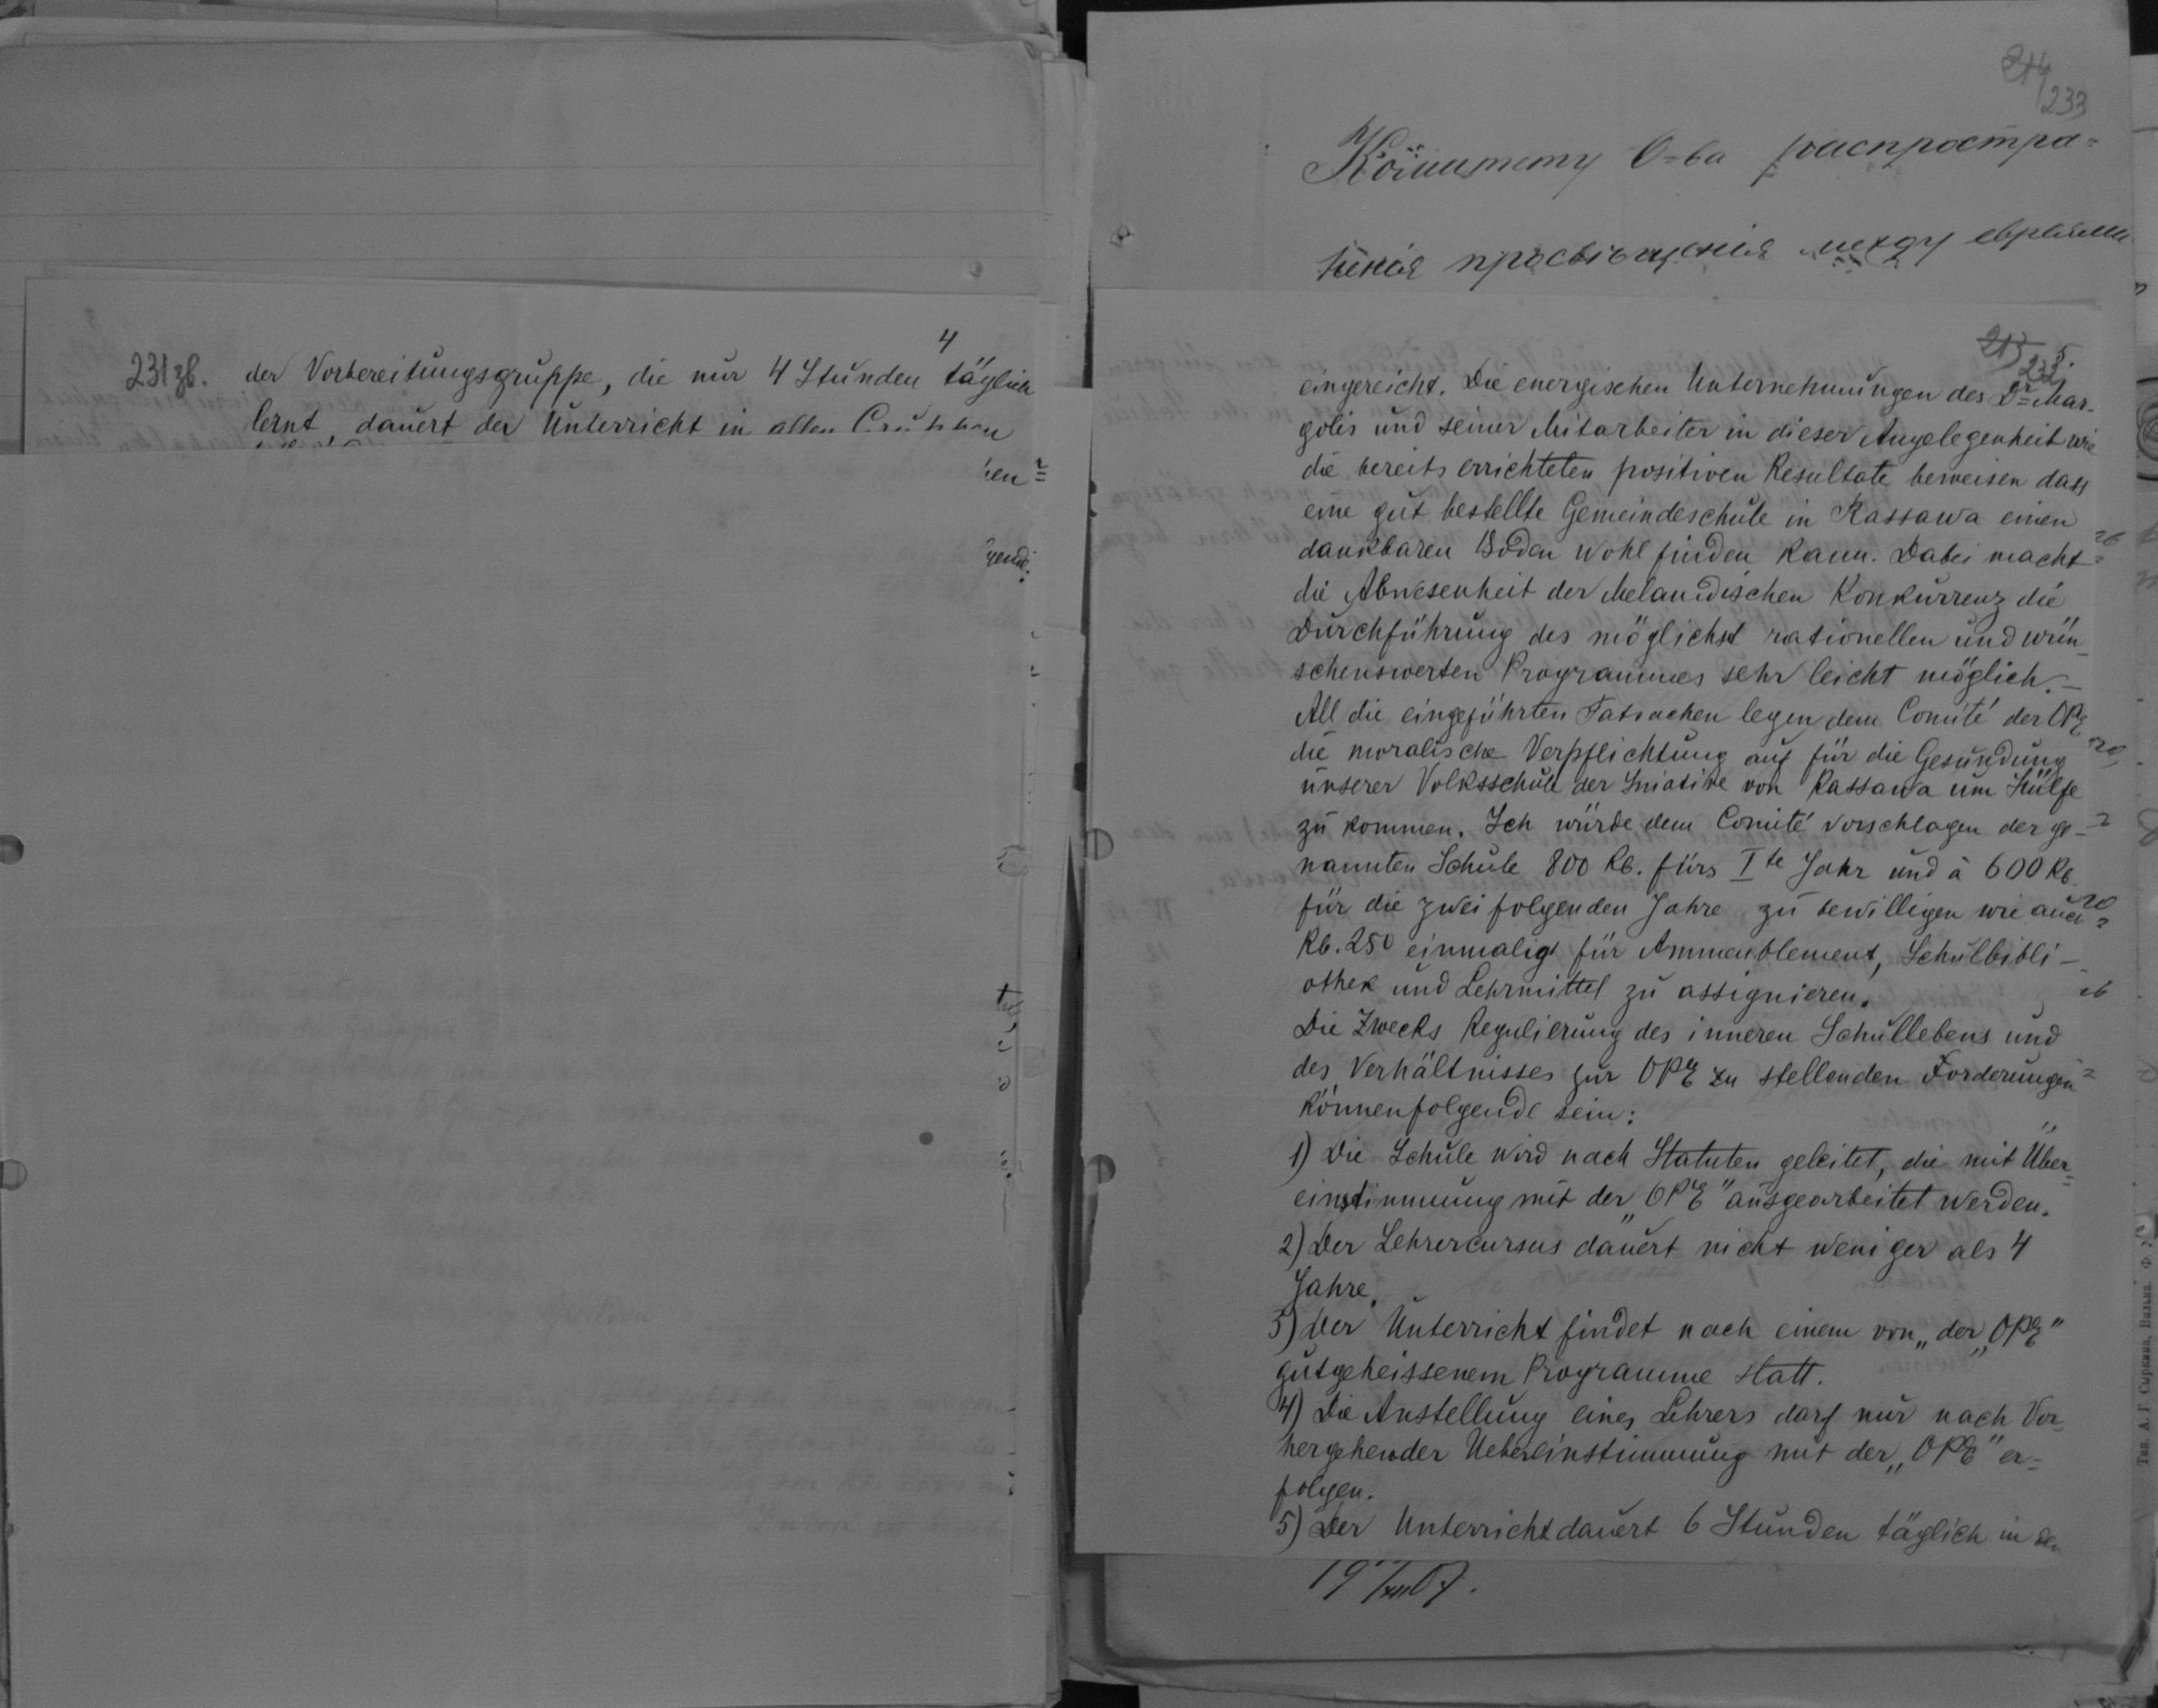 4
231 зб. der Vorbereitungsgruppe, die nur 4 Stunden täglich
lernt, dauert der Unterricht in allen Gruppen
gend.
214
233
Комитету О-ва распростра=
ненія просвѣщенія между евреями
213 5.
232
eingereicht. Die energischen Unternehmungen des Dr Mar-
golis und seiner Mitarbeiter in dieser Angelegenheit wie
die bereits errichteten positiven Resultate beweisen dass
eine gut bestellte Gemeindeschule in Rassawa einen
dankbaren Boden wohl finden kann. Dabei macht
die Abwesenheit der Melamdischen Konkurrenz die
Durchführung des möglichst rationellen und wün-
schenswerten Programmes sehr leicht möglich. —
All die eingeführten Tatsachen legen dem Comité der OPE
die moralische Verpflichtung auf für die Gesundung
unserer Volksschule der Iniative von Rassawa um Hülfe
zu kommen. Ich würde dem Comité vorschlagen der ge-
nannten Schule 800 Rb. fürs Ite Jahr und à 600 Rb.
für die zwei folgenden Jahre zu bewilligen wie auch
Rb. 250 einmalig für Ammeublement, Schulbibli-
othek und Lehrmittel zu assignieren.
Die Zwecks Regulierung des inneren Schullebens und
des Verhältnisses zur OPE zu stellenden Forderungen
können folgende sein:
1) Die Schule wird nach Statuten geleitet, die mit Über-
einstimmung mit der „OPE" ausgearbeitet werden.
2) Der Lehrercursus dauert nicht weniger als 4
Jahre.
3) Der Unterricht findet nach einem von „der „OPE"
gutgeheissenem Programme statt.
4) Die Anstellung eines Lehrers darf nur nach Vor-
hergehender Uebereinstimmung mit der „OPE" er=
folgen.
5) Der Unterricht dauert 6 Stunden täglich in den
Тип. А. Г. Сыркина, Вильна.